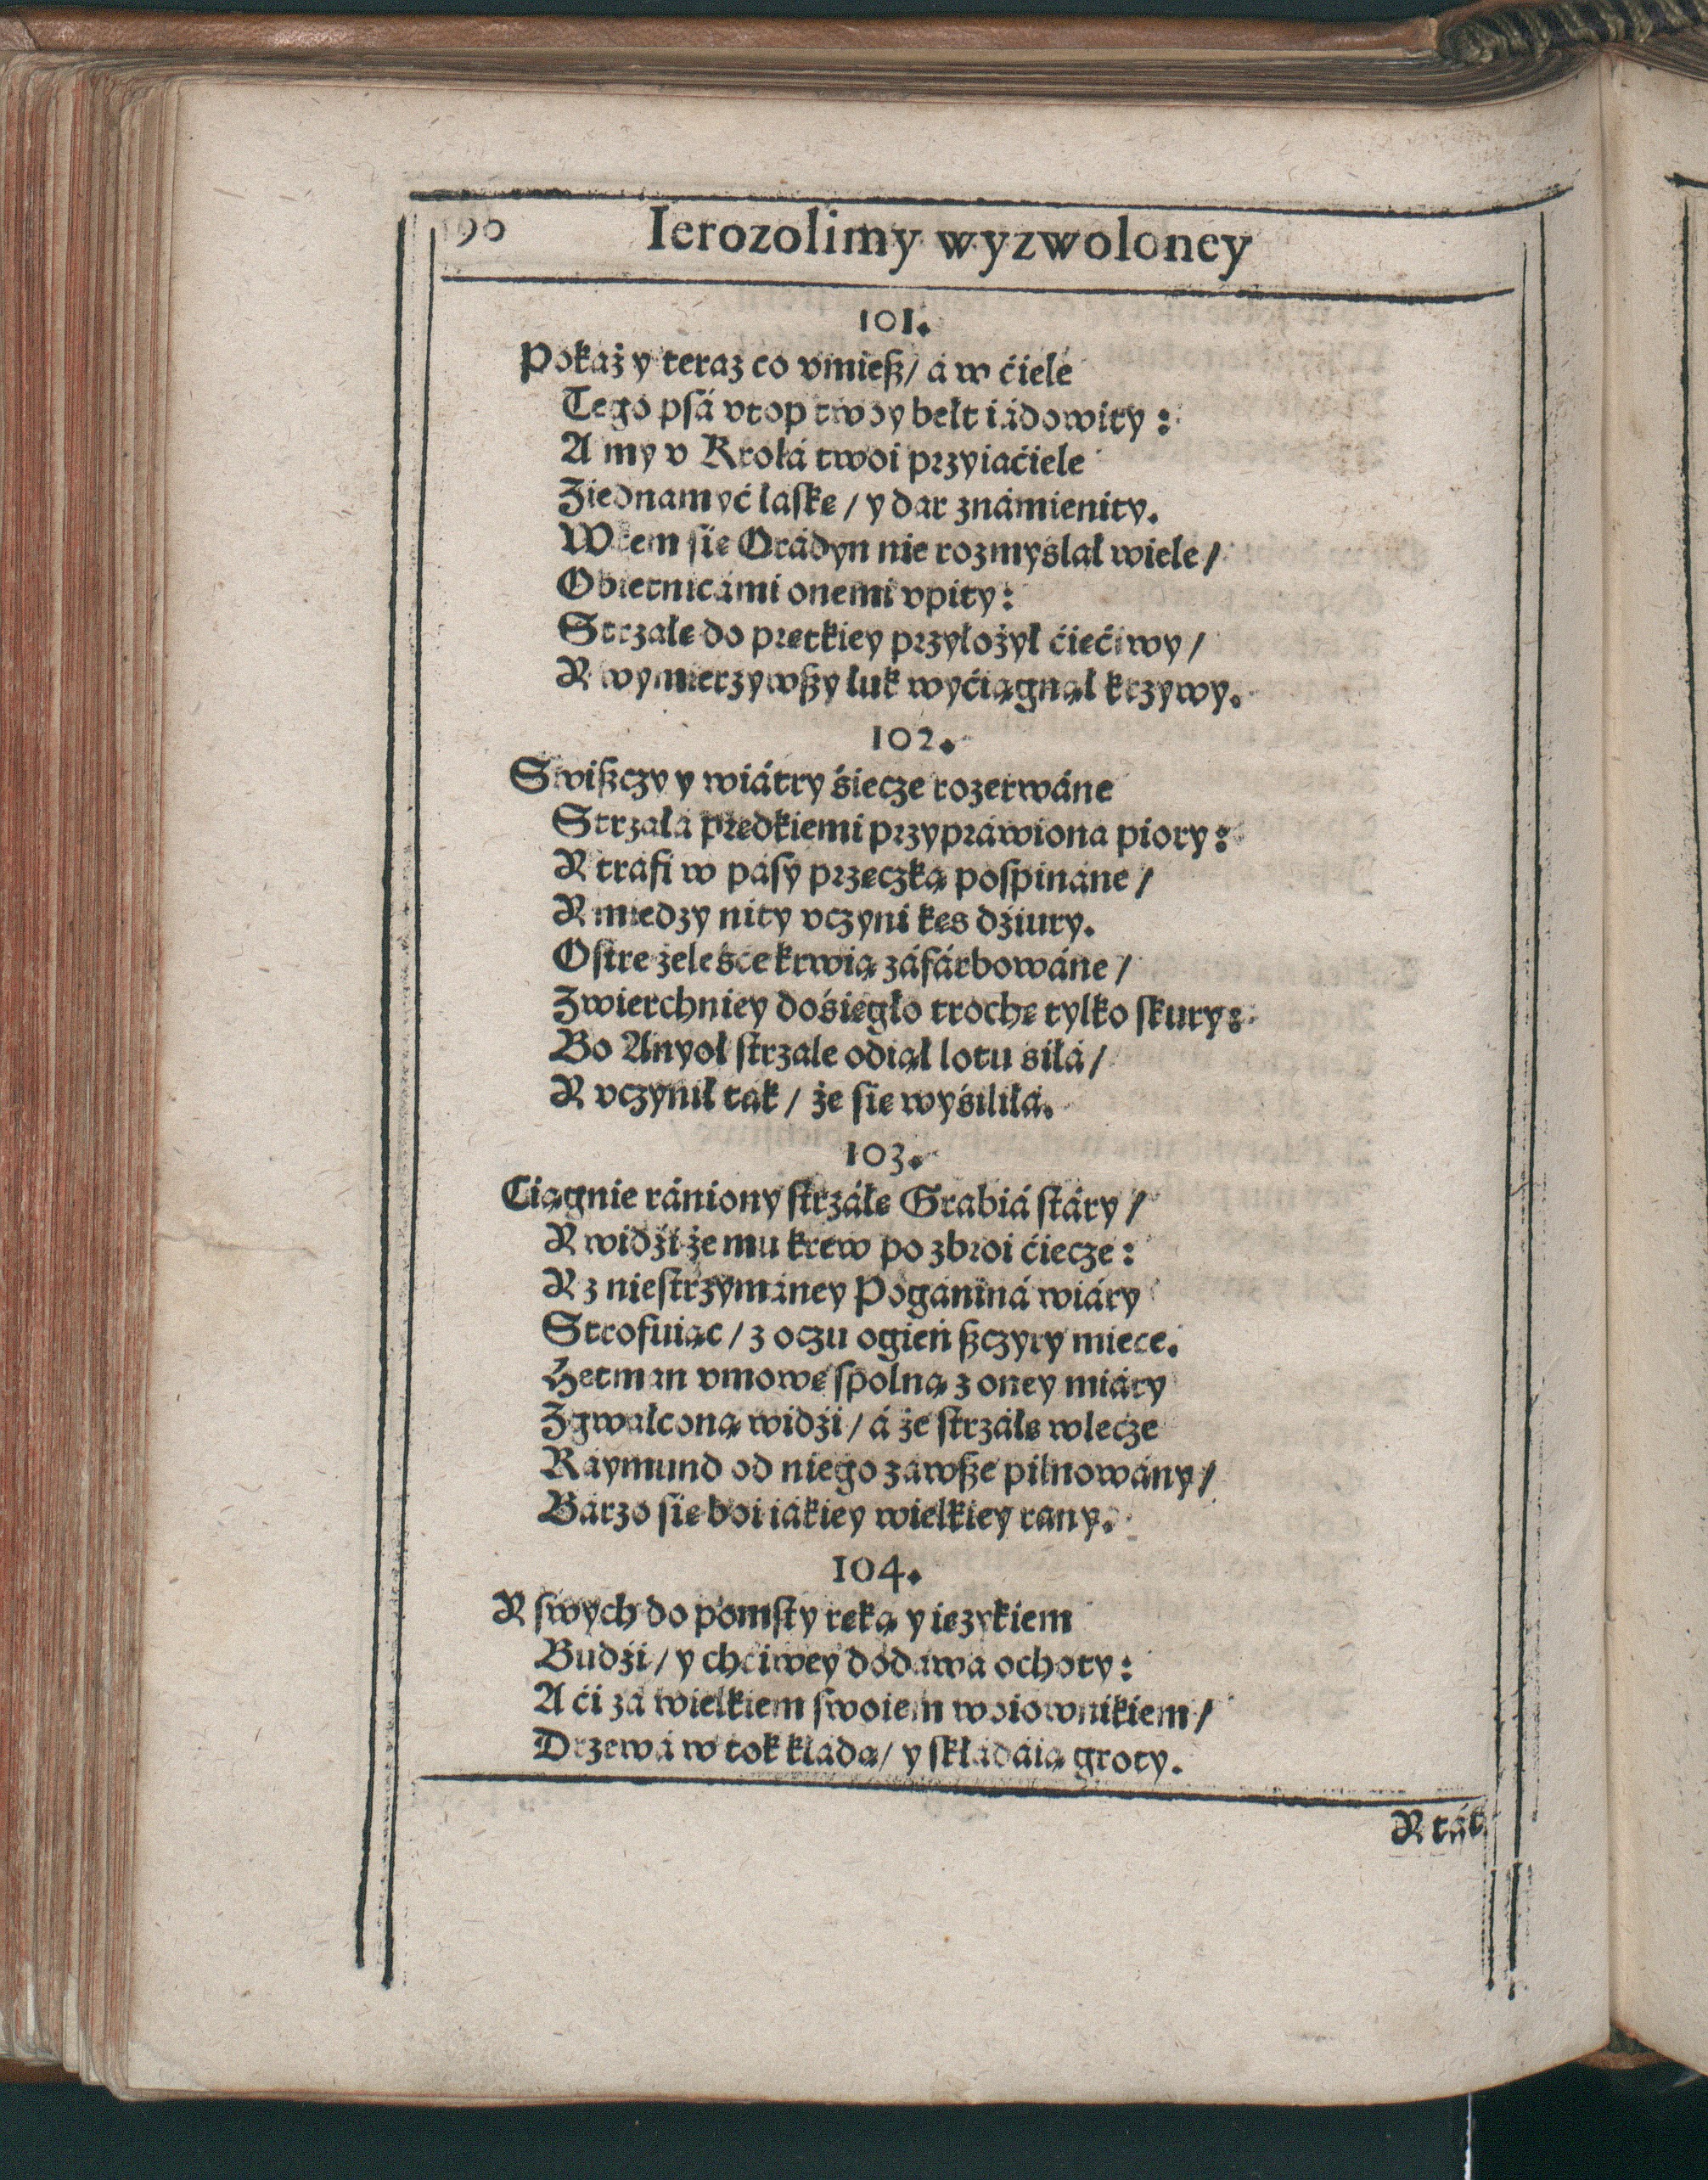 190 Ierozolimy wyzwoloney
101.
Pokaż y teraz co vmiesz/ á w ćiele
Tego psá vtop twoy bełt iádowity:
A my v Krolá twoi przyiaćiele
Ziednamyć łáskę/ y dar známienity.
Wtem się Orádyn nie rozmyślał wiele/
Obietnicámi onemi vpity:
Strzałę do prętkiey przyłożył ćięćiwy/
Y wymierzywszy łuk wyćiągnął krzywy.
102.
Swiszczy y wiátry śiecze rozerwáne
Strzałá prędkiemi przypráwiona piory:
Y tráfi w pásy przęczką pospináne/
Y między nity vczyni kęs dźiury.
Ostre żeleśce krwią záfárbowáne/
Zwierchniey dośięgło trochę tylko skury:
Bo Anyoł strzale odiął lotu siłá/
Y vczynił tak/ że się wyśiliłá.
103.
Ciągnie rániony strzáłę Grabiá stáry/
Y widźi że mu krew po zbroi ćiecze:
Y z niestrzymáney Pogániná wiáry
Strofuiąc/ z oczu ogień szczyry miece.
Hetman vmowę spolną z oney miáry
Zgwałconą widźi/ á że strzáłę wlecze
Ráymund od niego záwsze pilnowány/
Bárzo się boi iákiey wielkiey rany.
104.
Y swych do pomsty ręką y ięzykiem
Budźi/ y chciwey dodawa ochoty:
A ći zá wielkiem swoiem woiownikiem/
Drzewá w tok kłádą/ y skłádáią groty.
Y ták